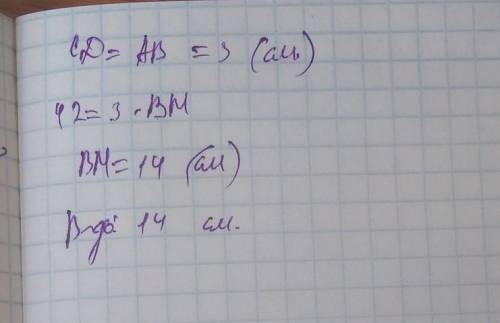 CD = AB = 3 (см)
42 = 3 · BM
BM = 14 (см)
В-дь 14 см.